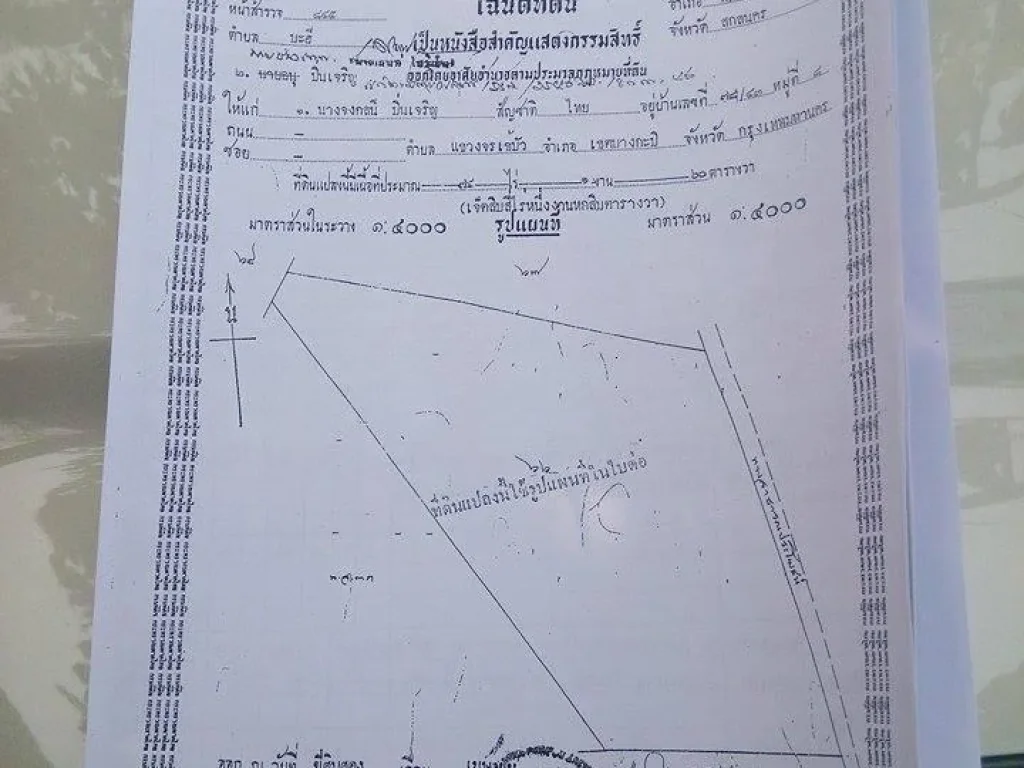 โฉนดที่ดิน
หน้าสำรวจ ๘๔๕
อำเภอ
ตำบล บะฮี
เป็นหนังสือสำคัญแสดงกรรมสิทธิ์
จังหวัด สกลนคร
๒. นายอนุ ปิ่นเจริญ ออกโดยอาศัยอำนาจตามประมวลกฎหมายที่ดิน
ให้แก่ ๑. นางจงกลนี ปิ่นเจริญ สัญชาติ ไทย อยู่บ้านเลขที่ ๗๘/๔๓ หมู่ที่ ๘
ถนน – ตำบล แขวงจรเข้บัว อำเภอ เขตบางกะปิ จังหวัด กรุงเทพมหานคร
ซอย –
ที่ดินแปลงนี้มีเนื้อที่ประมาณ ๗๔ ไร่ ๑ งาน ๖๐ ตารางวา
(เจ็ดสิบสี่ไร่หนึ่งงานหกสิบตารางวา)
มาตราส่วนในระวาง ๑:๔๐๐๐ รูปแผนที่ มาตราส่วน ๑:๔๐๐๐
๒๘
๒๗
น
๖๒
ที่ดินแปลงนี้ใช้รูปแผนที่ในใบต่อ
ทางสาธารณประโยชน์
ออก ณ วันที่ ยี่สิบสอง เดือน เมษายน